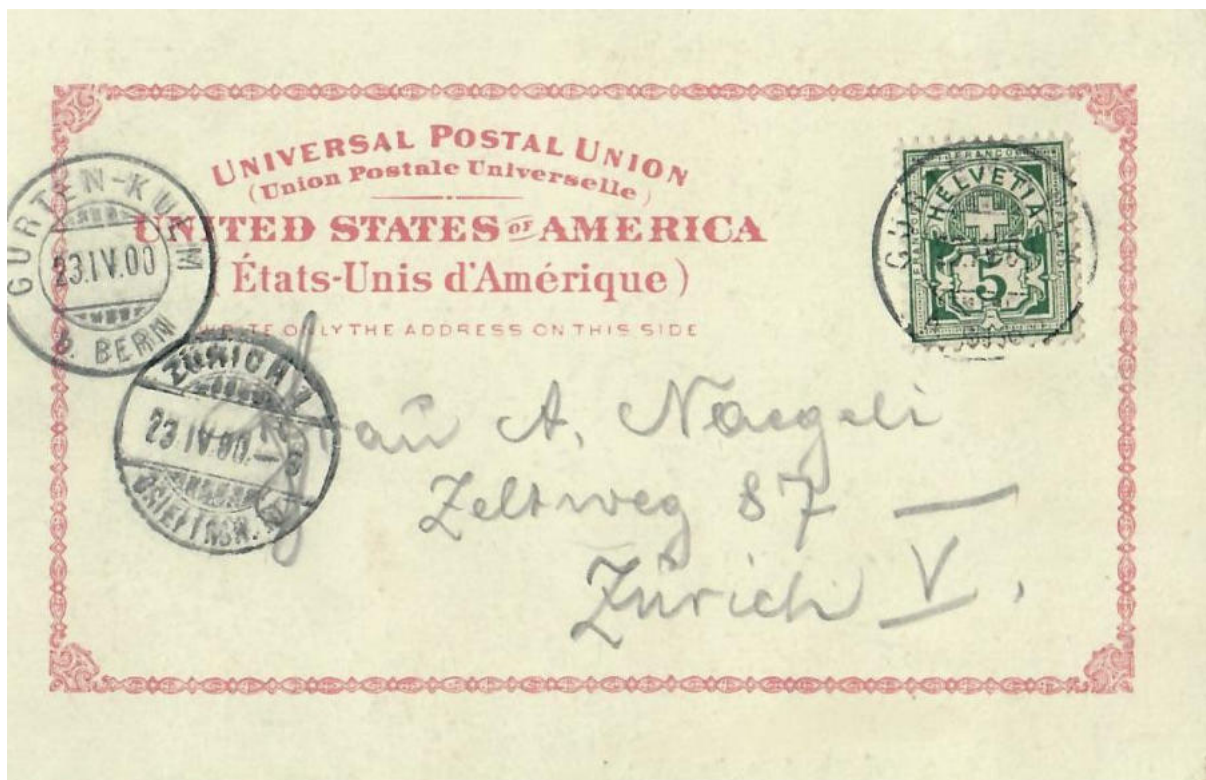 UNIVERSAL POSTAL UNION
(Union Postale Universelle)
UNITED STATES OF AMERICA
(États-Unis d'Amérique)
WRITE ONLY THE ADDRESS ON THIS SIDE
GURTEN-KULM
23.IV.00
b. BERN
ZÜRICH V
23.IV.00.
BRIEFTRÄGER
HELVETIA
5
Frau A. Naegeli
Zeltweg 87 —
Zürich V.